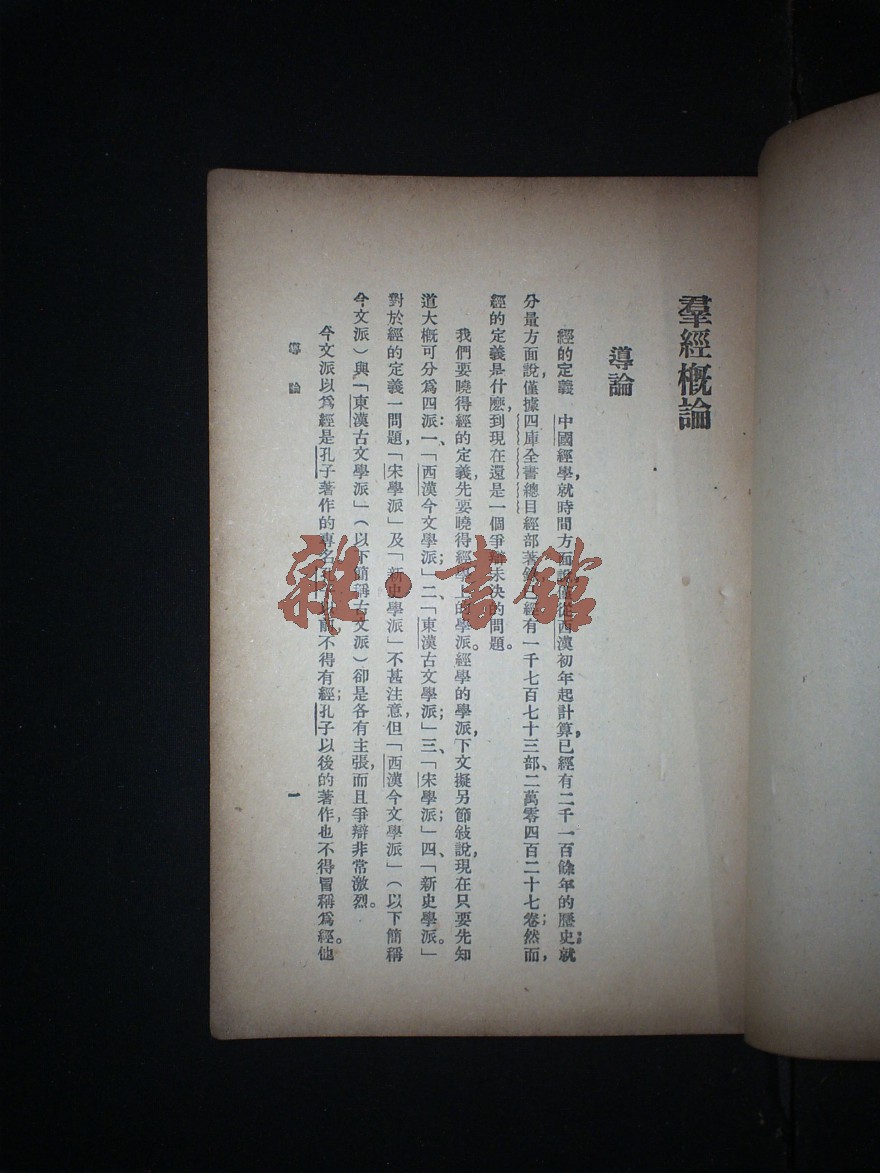 羣經概論
導論
經的定義　中國經學，就時間方面說，僅從西漢初年起計算，已經有二千一百餘年的歷史；就
分量方面說，僅據四庫全書總目經部著錄，已經有一千七百七十三部、二萬零四百二十七卷；然而，
經的定義是什麽，到現在還是一個爭辯未決的問題。
我們要曉得經的定義，先要曉得經學上的學派。經學的學派，下文擬另節敍說，現在只要先知
道大概可分爲四派：一、「西漢今文學派」；二、「東漢古文學派」；三、「宋學派」；四、「新史學派。」
對於經的定義一問題，「宋學派」及「新史學派」不甚注意，但「西漢今文學派」（以下簡稱
今文派）與「東漢古文學派」（以下簡稱古文派）卻是各有主張，而且爭辯非常激烈。
今文派以爲經是孔子著作的專名，孔子以前，不得有經；孔子以後的著作，也不得冒稱爲經。他
導論
一
雜·書館